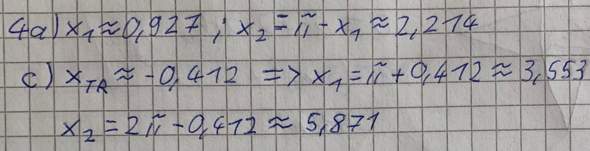 4a) x₁≈0,927 ; x₂=π-x₁≈2,214
c) x_TR≈-0,412 => x₁=π+0,412≈3,553
x₂=2π-0,412≈5,871